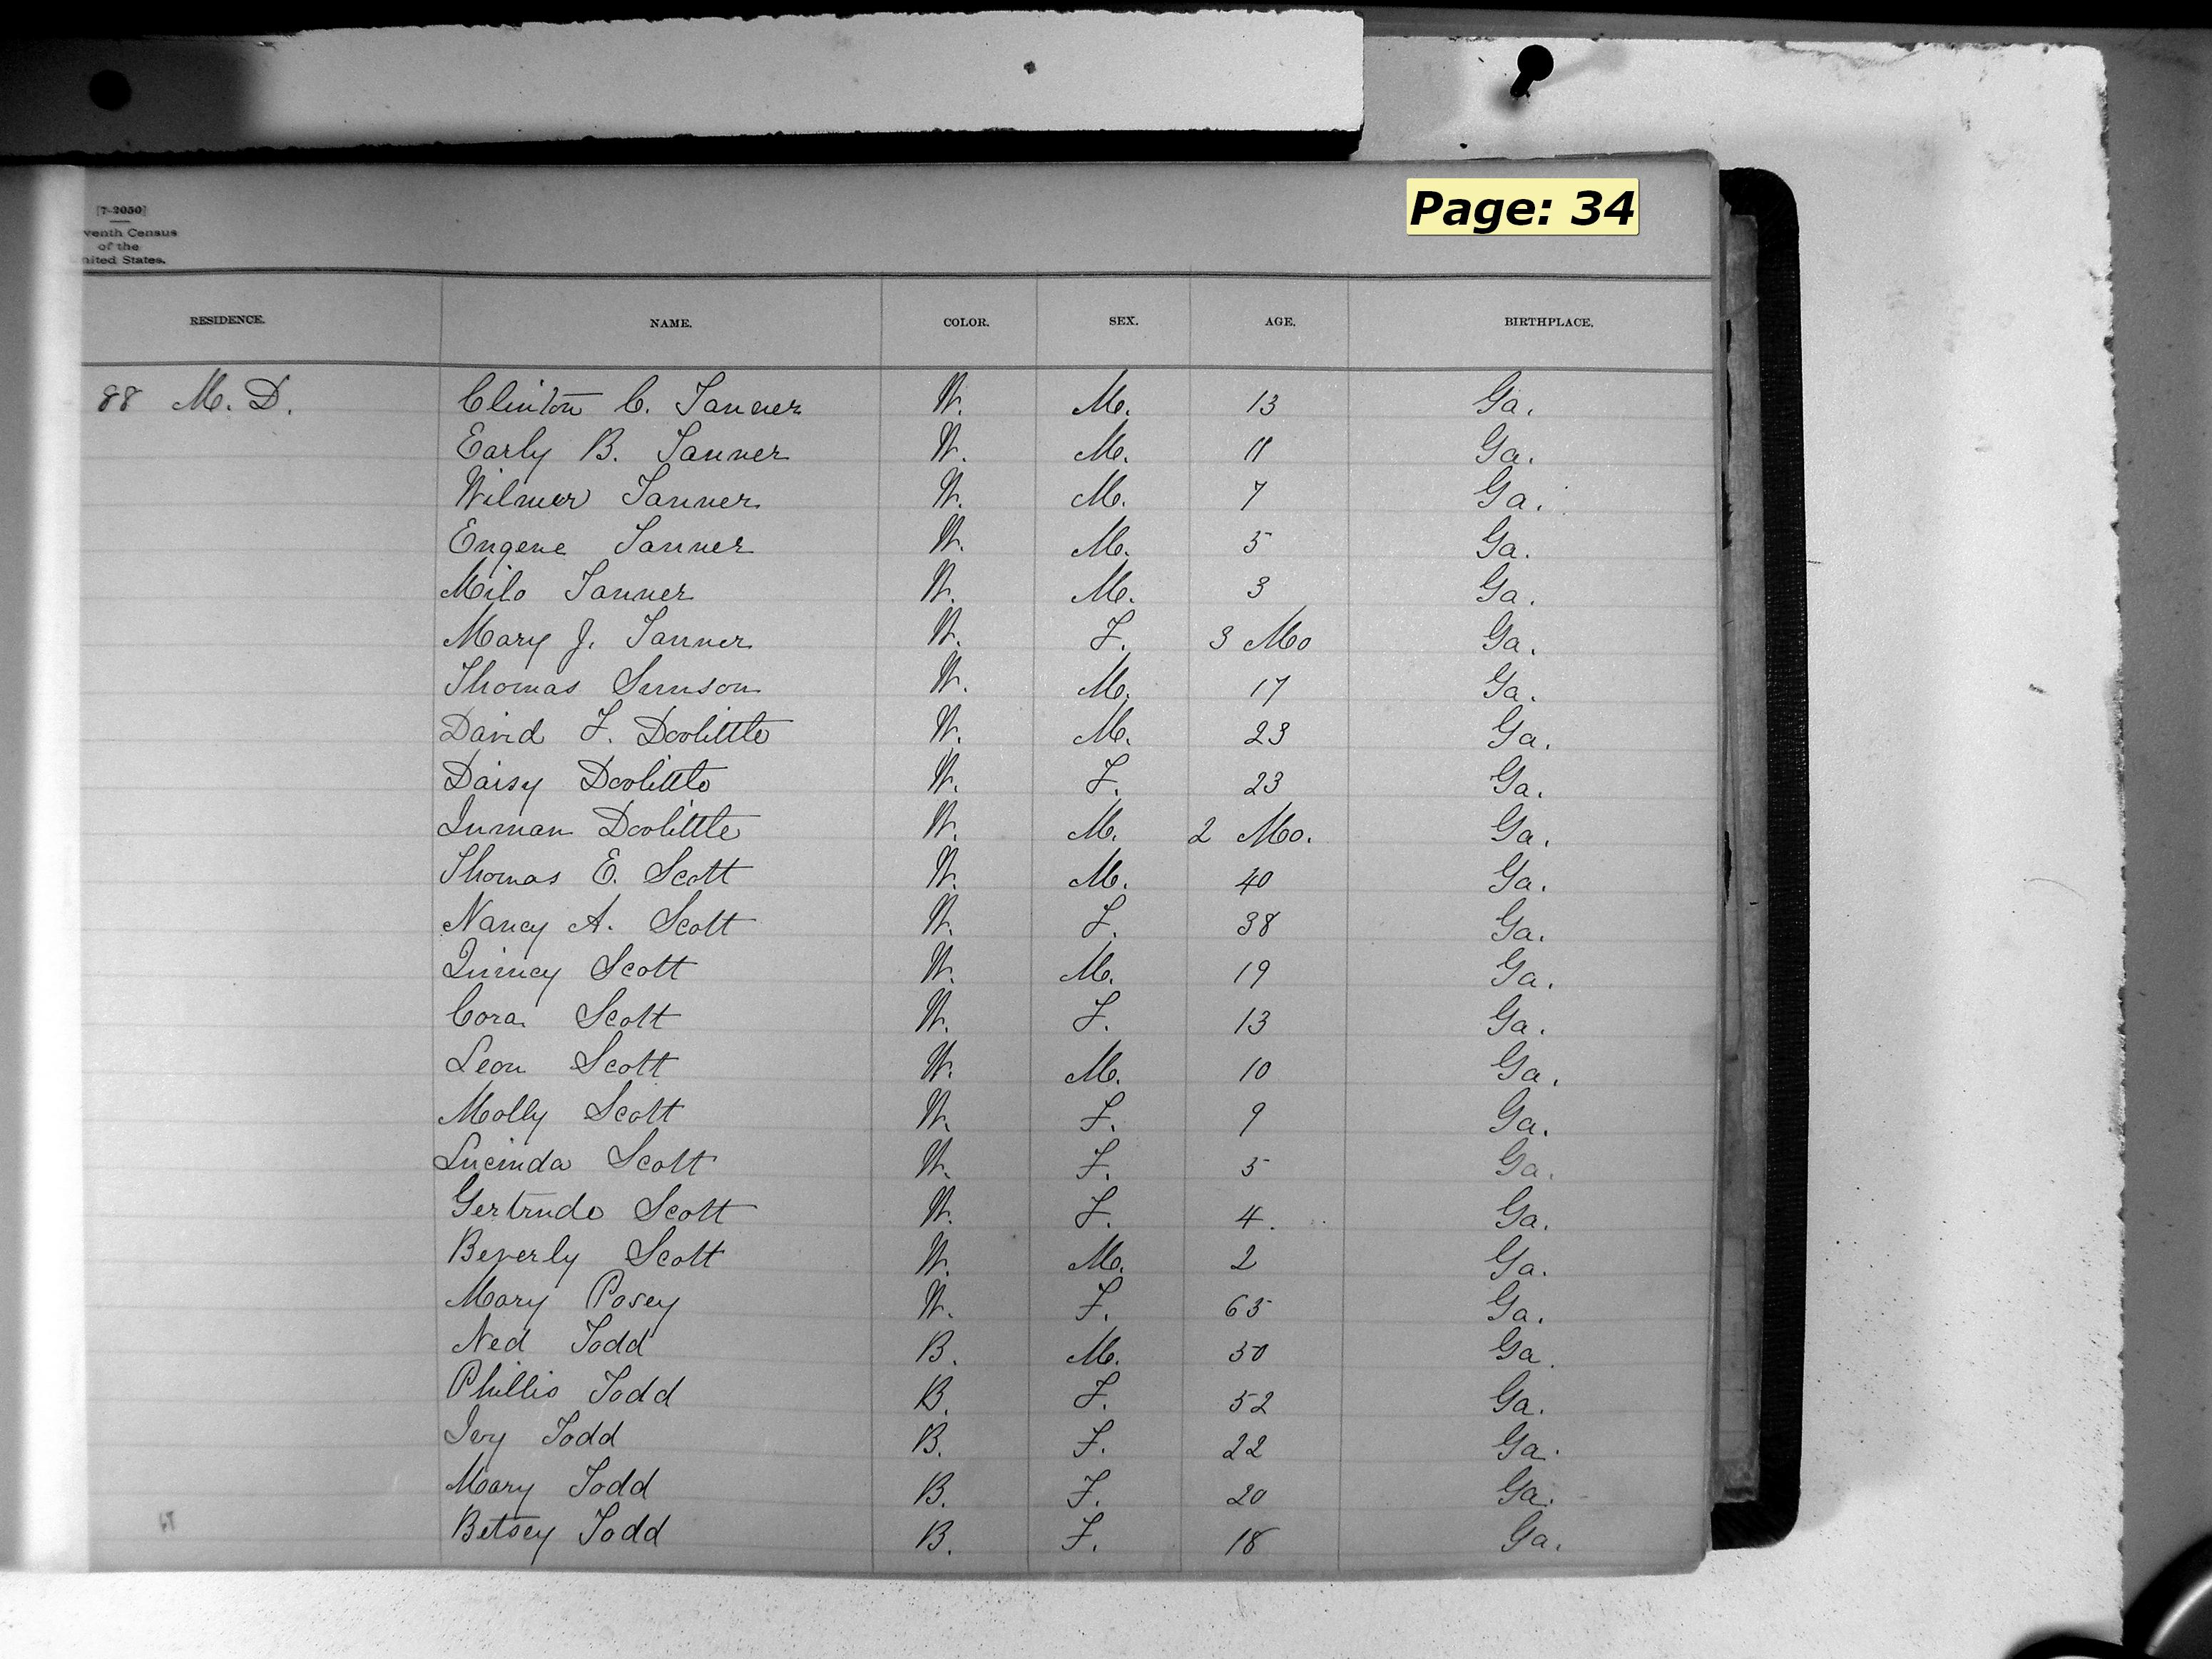 Page: 34
[7-2050]
venth Census
of the
nited States.
RESIDENCE. NAME. COLOR. SEX. AGE. BIRTHPLACE.
88 M. D. Clinton C. Tanner W. M. 13 Ga.
Early B. Tanner W. M. 11 Ga.
Wilmer Tanner W. M. 7 Ga.
Eugene Tanner W. M. 5 Ga.
Milo Tanner W. M. 3 Ga.
Mary J. Tanner W. F. 3 Mo Ga.
Thomas W. M. 17 Ga.
David F. Doolittle W. M. 23 Ga.
Daisy Doolittle W. F. 23 Ga.
Inman Doolittle W. M. 2 Mo. Ga.
Thomas E. Scott W. M. 40 Ga.
Nancy A. Scott W. F. 38 Ga.
Quincy Scott W. M. 19 Ga.
Cora Scott W. F. 13 Ga.
Leon Scott W. M. 10 Ga.
Molly Scott W. F. 9 Ga.
Lucinda Scott W. F. 5 Ga.
Gertrude Scott W. F. 4. Ga.
Beverly Scott W. M. 2 Ga.
Mary Posey W. F. 65 Ga.
Ned Todd B. M. 50 Ga.
Phillis Todd B. F. 52 Ga.
Ivy Todd B. F. 22 Ga.
Mary Todd B. F. 20 Ga.
Betsey Todd B. F. 18 Ga.